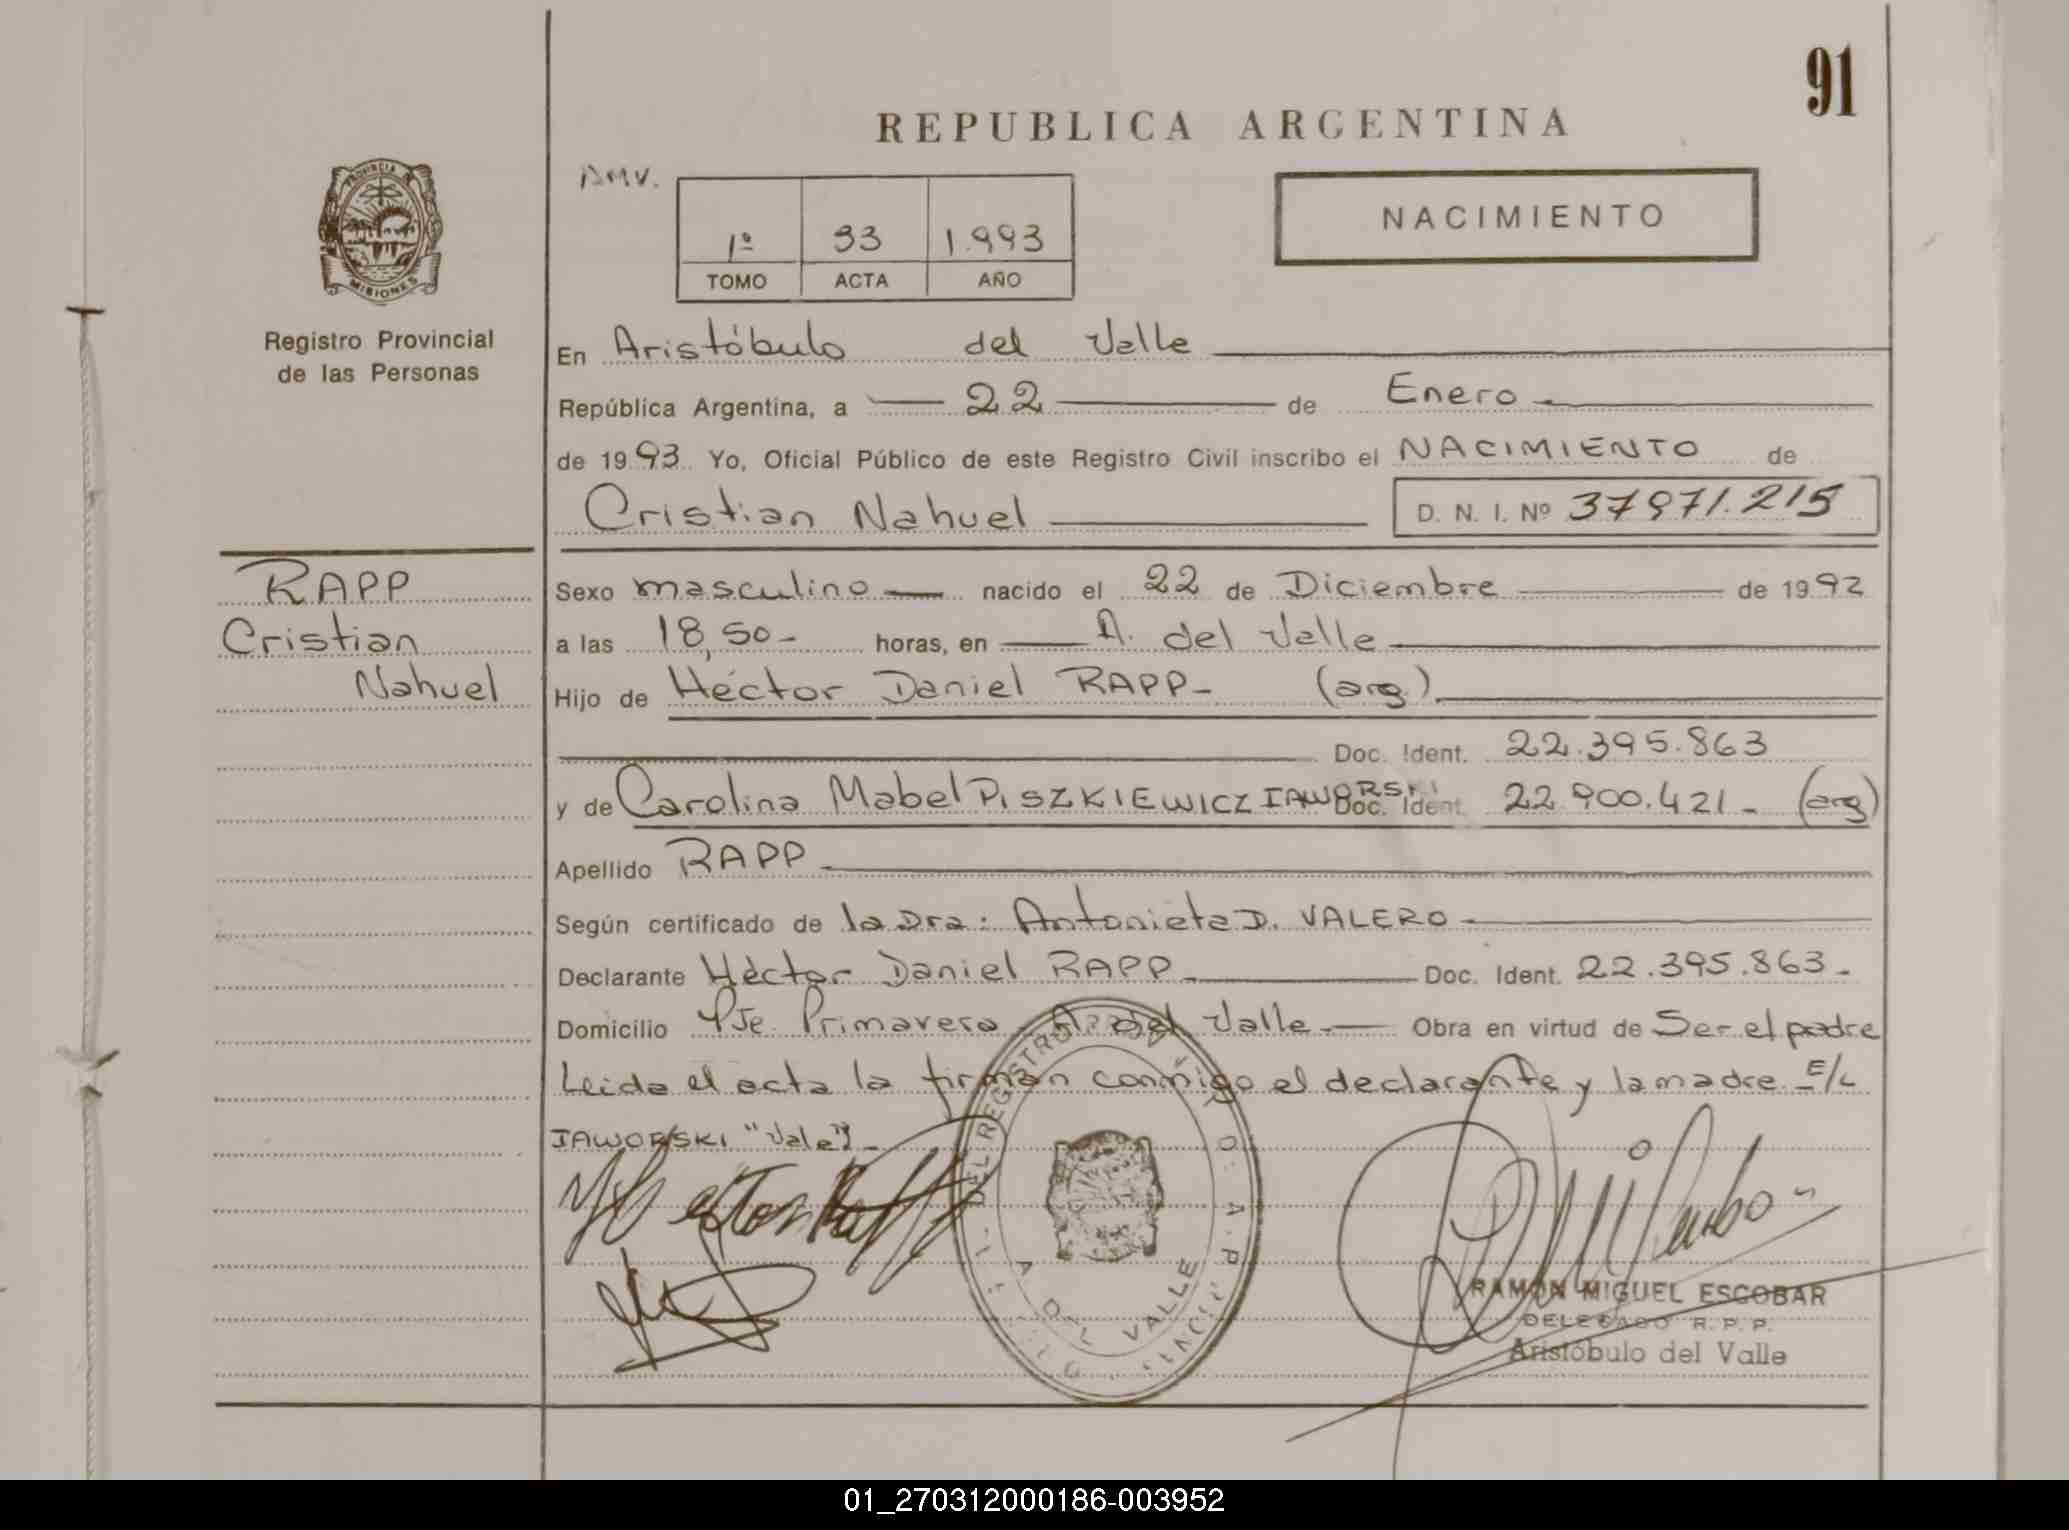 91
REPUBLICA ARGENTINA
AMV.
PROVINCIA
MISIONES
1º 93 1.993
TOMO ACTA AÑO
NACIMIENTO
Registro Provincial
de las Personas
En Aristóbulo del Valle
República Argentina, a 22 de Enero
de 1993 Yo, Oficial Público de este Registro Civil inscribo el NACIMIENTO de
Cristian Nahuel D. N. I. Nº 37971.215
RAPP
Cristian
Nahuel
Sexo masculino nacido el 22 de Diciembre de 1992
a las 18,50- horas, en A. del Valle
Hijo de Héctor Daniel RAPP- (arg.)
Doc. Ident. 22.395.863
y de Carolina Mabel PISZKIEWICZ IAWORSKI Doc. Ident. 22.900.421- (arg)
Apellido RAPP
Según certificado de la Dra: Antonieta D. VALERO
Declarante Héctor Daniel RAPP Doc. Ident. 22.395.863-
Domicilio Pje. Primavera A. del Valle Obra en virtud de Ser el padre
Leida el acta la firman conmigo el declarante y la madre E/L
IAWORSKI "Vale"-
DEL REGISTRO
A DEL VALLE
RAMON MIGUEL ESCOBAR
DELEGADO R. P. P.
Aristóbulo del Valle
01_270312000186-003952